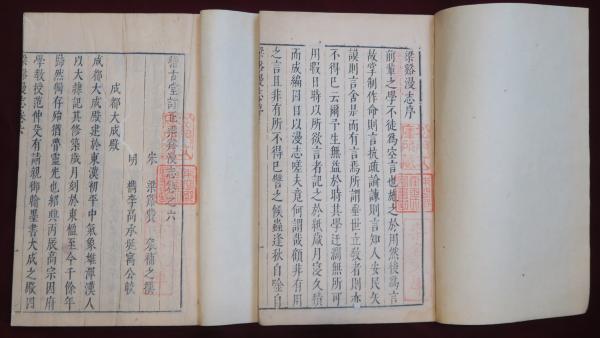 梁谿漫志序
前輩之學不徒為空言也施之於用然後為言
故掌制作命則言抗疏論諫則言知人安民矢
謨則言舍是而有言焉所謂垂世立教者則亦
不得巳云爾予生無益於時其學迂濶無所可
用暇日時以所欲言者記之於紙歲月寖久積
而成編因目以漫志嗟夫竟何謂哉顧非有用
之言且非有所不得巳譬之候蟲逢秋自喧自
梁谿漫志序
稽古堂訂正梁谿漫志卷之六
宋 梁谿費 衮補之撰
明 檇李高承埏寓公較
成都大成殿
成都大成殿建於東漢初平中氣象雄渾漢人
以大隷記其修築歲月刻於東楹至今千餘年
巋然獨存殆猶魯靈光也紹興丙辰高宗因府
學教授范仲殳有請親御翰墨書大成之殿四
梁谿漫志卷六